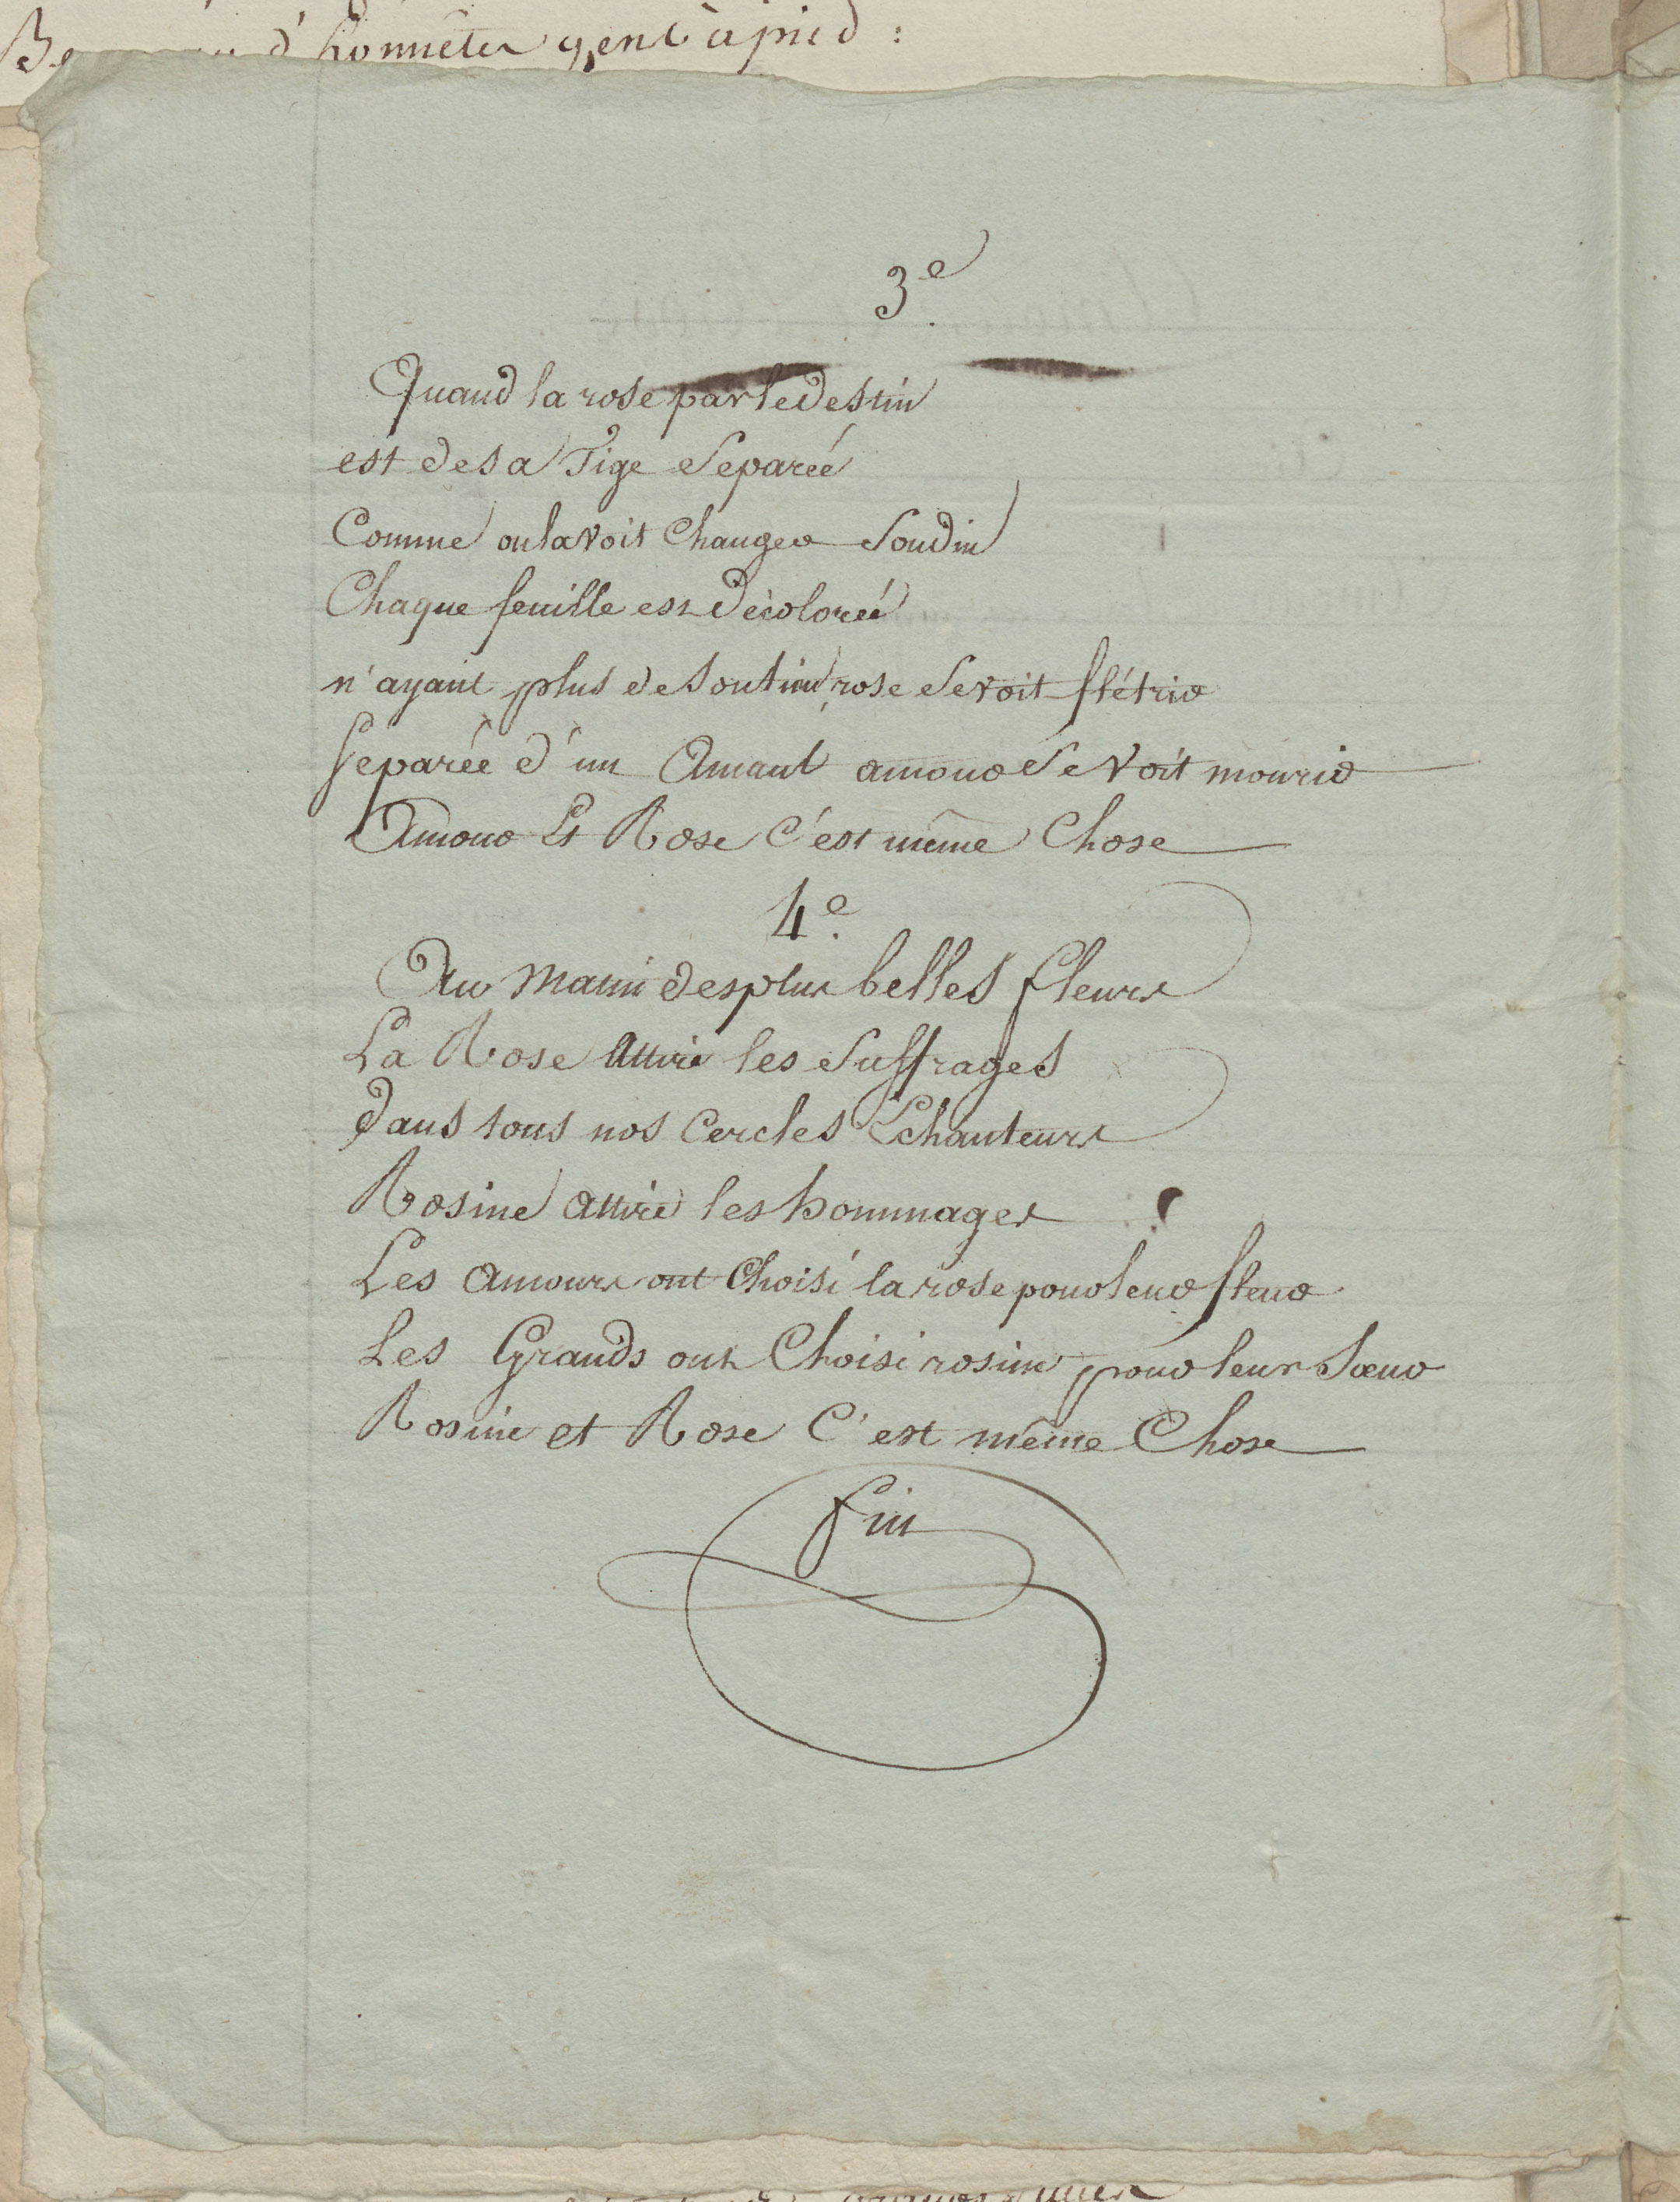 d'honnêtes gens à pied :
3e.
Quand la rose par le destin
est de sa Tige Separeé
Comme on la voit Changer Soudin
Chaque feuille est Décoloreé
n'ayant plus de Soutien rose Se voit flétrir
Separée d'un Amant amour Se Voit mourir
Amour Et Rose C'est même Chose
4e.
Au des plus belles fleurs
La Rose Attire les Suffrages
dans tous nos Cercles Echanteurs
Rosine attire les hommages
Les Amours ont Choisi la rose pour leur fleur
Les Grands ont Choisi rosine pour leur Sœur
Rosine et Rose C'est même Chose
fin